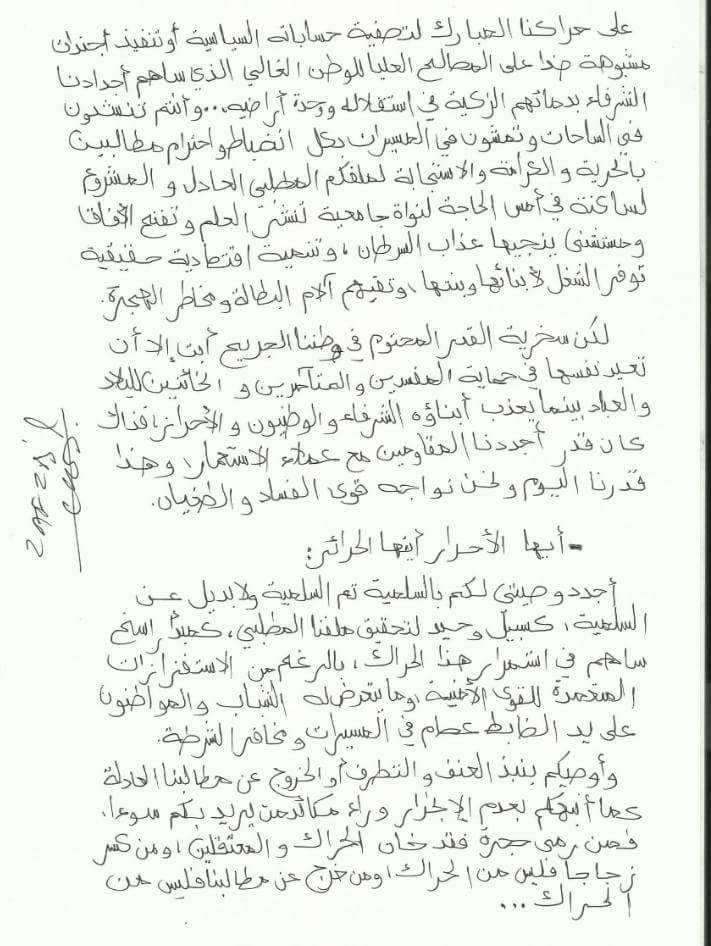 على حراكنا المبارك لتصفية حساباته السياسية أو تنفيذ أجندات
مشبوهة ضدا على المصالح العليا للوطن الغالي الذي ساهم أجدادنا
الشرفاء بدمائهم الزكية في استقلاله ووحدة أراضيه... وأنتم تنشدون
في الساحات وتمشون في المسيرات بكل انضباط واحترام مطالبين
بالحرية والكرامة والاستجابة لملفكم المطلبي العادل والمشروع
لساكنة في أمس الحاجة لنواة جامعية تنشر العلم وتفتح الآفاق
ومستشفى ينجيها عذاب السرطان، وتنمية اقتصادية حقيقية
توفر الشغل لأبنائها وبنتها، وتقيهم آلام البطالة ومخاطر الهجرة.
لكن سخرية القدر المحتوم في وطننا الجريح أبت إلا أن
تعيد نفسها في حماية المفسدين والمتآمرين و الخائنين للبلاد
والعباد بينما يعذب أبناؤه الشرفاء والوطنيون والأحرار، فذاك
كان قدر أجددنا المقاومين مع عملاء الاستعمار، وهذا
قدرنا اليوم ونحن نواجه قوى الفساد والطغيان.
- أيها الأحرار أيتها الحرائر:
أجدد وصيتي لكم بالسلمية ثم السلمية ولا بديل عن
السلمية، كسبيل وحيد لتحقيق ملفنا المطلبي، كمبدأ راسخ
ساهم في استمرار هذا الحراك، بالرغم من الاستفزازات
المتعمدة للقوى الأمنية، وما يتعرض له الشباب والمواطنون
على يد الضابط عصام في المسيرات ومخافر الشرطة.
وأوصيكم بنبذ العنف والتطرف أو الخروج عن مطالبنا العادلة
كما أنبهكم بعدم الإنجرار وراء مكائد من يريد بكم سوءا،
فمن رمى حجرة فقد خان الحراك والمعتقلين، ومن كسر
زجاجا فليس من الحراك، ومن خرج عن مطالبنا فليس من
الحراك...